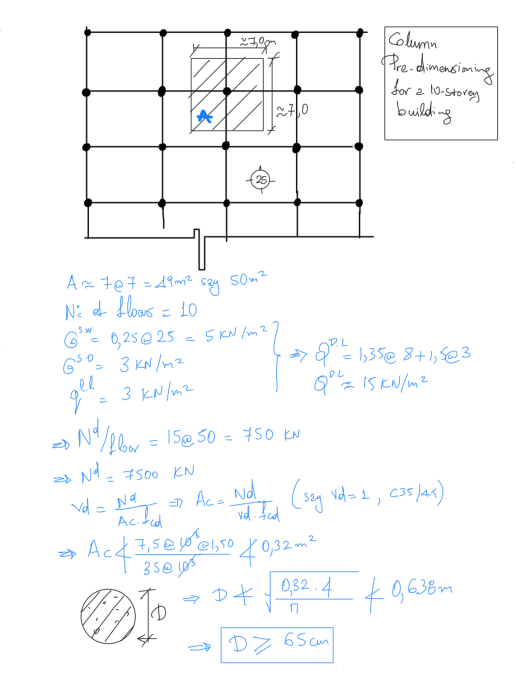 ≈7,0m
Column
Pre-dimensioning
for a 10-storey
building
≈7,0
A
25
A ≈ 7@7 = 49m² say 50m²
N: of floors = 10
G^S.W = 0,25@25 = 5 KN/m²
G^S.D = 3 KN/m²
q^l.l = 3 KN/m²
⇒ Q^D.L = 1,35@8+1,5@3
Q^D.L ≈ 15 KN/m²
⇒ N^d/floor = 15@50 = 750 KN
⇒ N^d = 7500 KN
vd = Nd/(Ac.fcd) ⇒ Ac = Nd/(vd.fcd) (say vd=1, C35/45)
⇒ Ac ≮ (7,5@10³@1,50)/(35@10³) ≮ 0,32m²
D ⇒ D ≮ √(0,32.4/π) ≮ 0,638m
⇒ D ≥ 65cm